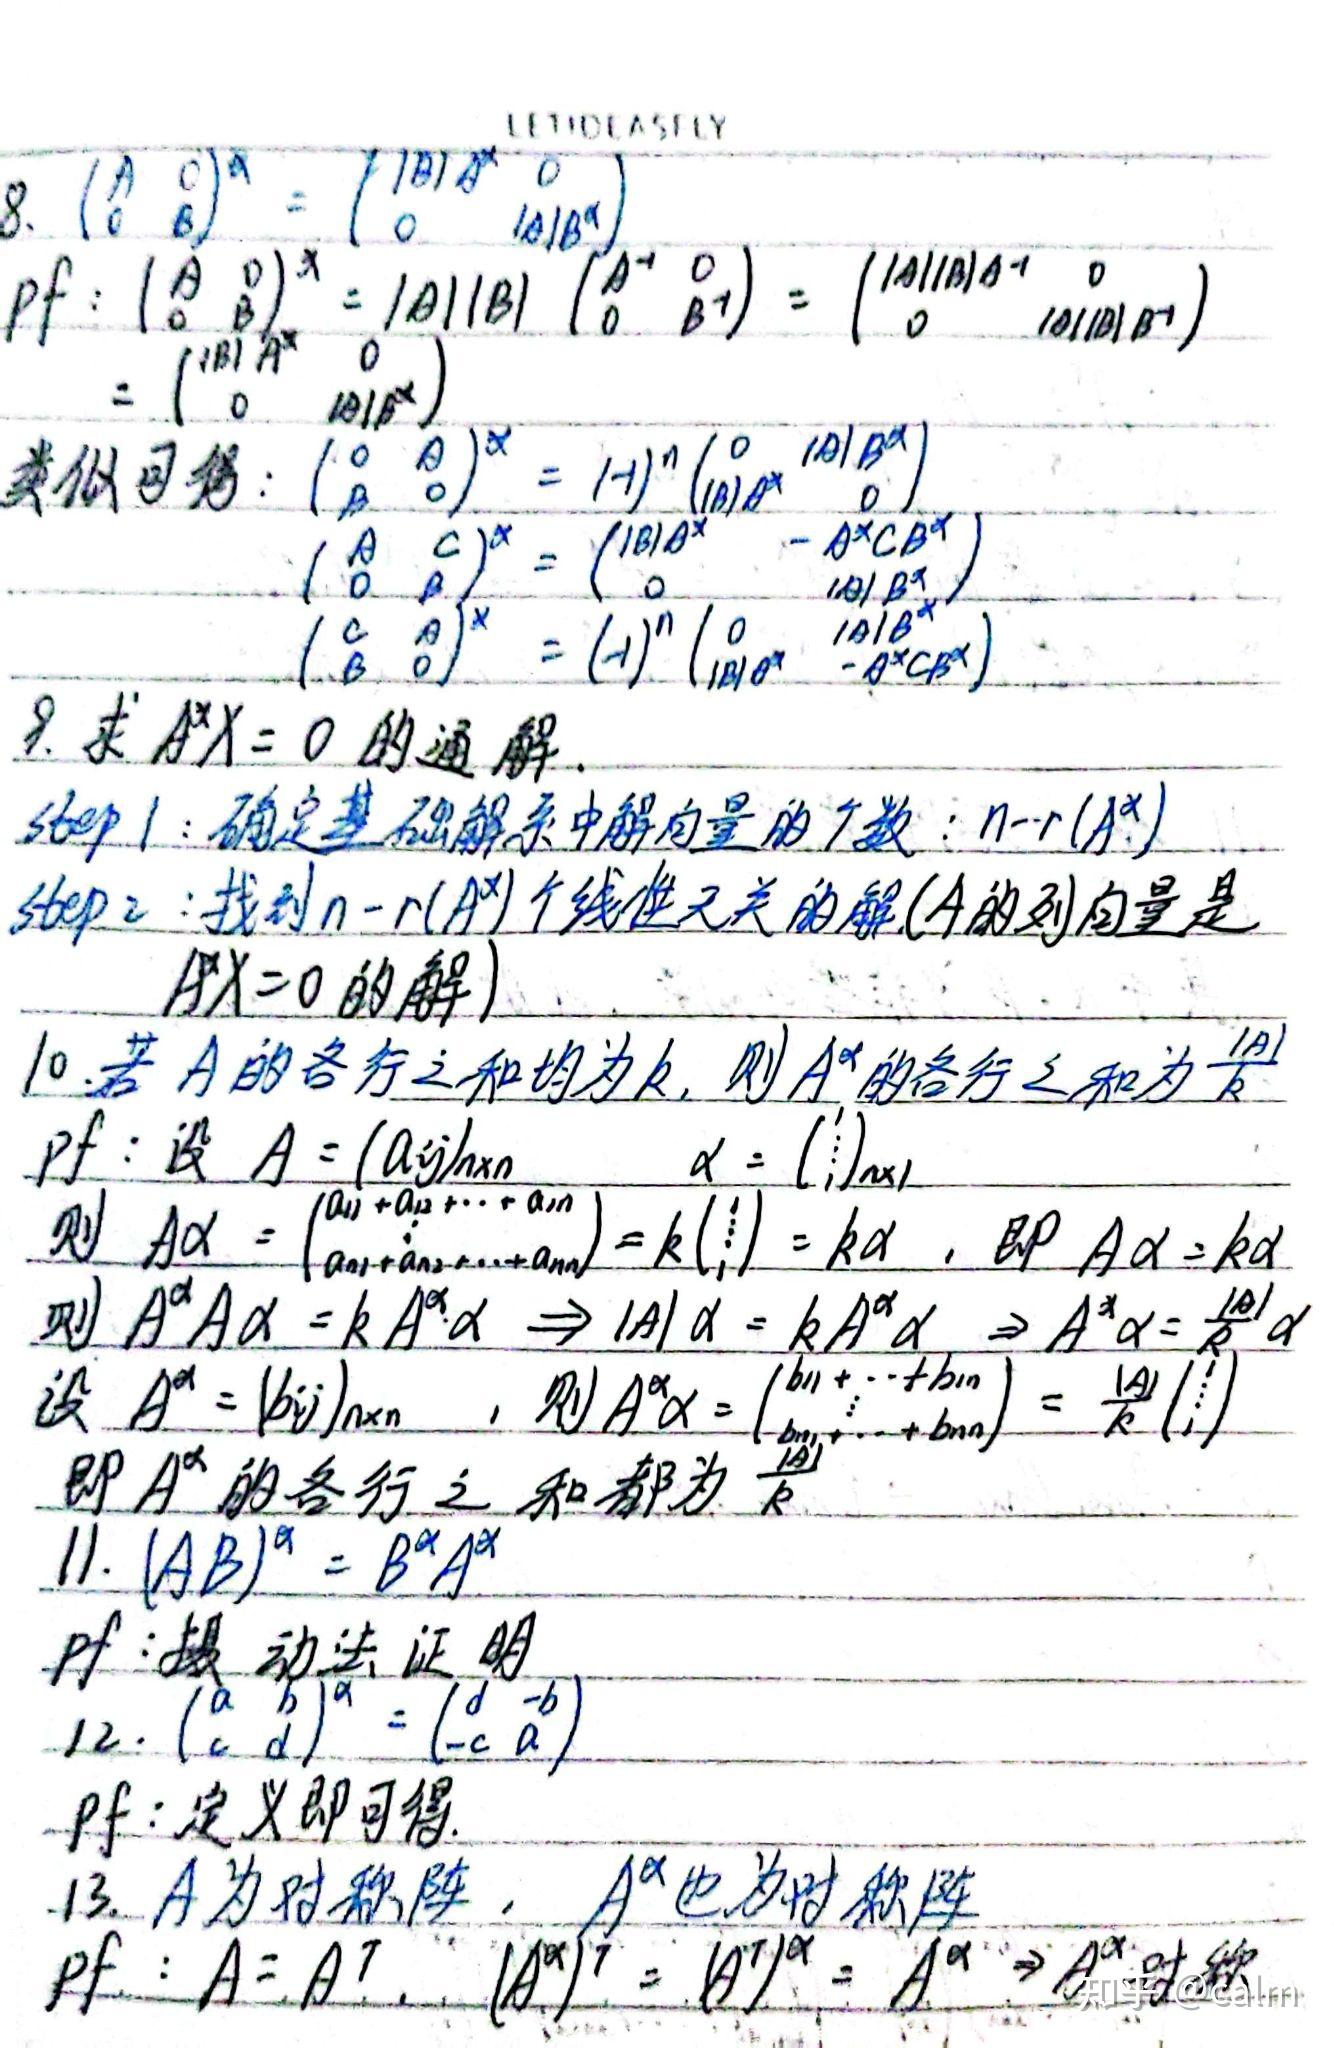 LETIDEASFLY
8. (A 0; 0 B)* = (|B|A* 0; 0 |A|B*)
pf: (A 0; 0 B)* = |A||B| (A⁻¹ 0; 0 B⁻¹) = (|A||B|A⁻¹ 0; 0 |A||B|B⁻¹)
= (|B|A* 0; 0 |A|B*)
类似可得: (0 A; B 0)* = (-1)ⁿ (0 |A|B*; |B|A* 0)
(A C; 0 B)* = (|B|A* -A*CB*; 0 |A|B*)
(C A; B 0)* = (-1)ⁿ (0 |A|B*; |B|A* -A*CB*)
9. 求 A*X = 0 的通解.
step 1: 确定基础解系中解向量的个数: n-r(A*)
step 2: 找到 n-r(A*) 个线性无关的解(A的列向量是
A*X=0 的解)
10. 若 A 的各行之和均为 k, 则 A* 的各行之和为 |A|/k
pf: 设 A = (aij)n×n α = (1 ⋮ 1)n×1
则 Aα = (a11+a12+⋯+a1n ⋮ an1+an2+⋯+ann) = k(1 ⋮ 1) = kα, 即 Aα = kα
则 A*Aα = kA*α ⇒ |A|α = kA*α ⇒ A*α = |A|/k α
设 A* = (bij)n×n, 则 A*α = (b11+⋯+b1n ⋮ bn1+⋯+bnn) = |A|/k (1 ⋮ 1)
即 A* 的各行之和都为 |A|/k
11. (AB)* = B*A*
pf: 摄动法证明
12. (a b; c d)* = (d -b; -c a)
pf: 定义即可得.
13. A为对称阵, A*也为对称阵
pf: A = Aᵀ, (A*)ᵀ = (Aᵀ)* = A* ⇒ A*对称
知乎 @calm